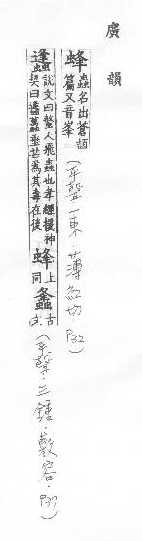 廣韻
蜂蟲名出蒼頡篇又音峯(平聲一東·薄紅切 P32)
蠭說文曰螫人飛蟲也孝經援神契曰蠭蠆垂芒為其毒在後蜂上同螽古文(平聲·三鍾·敷容·P37)